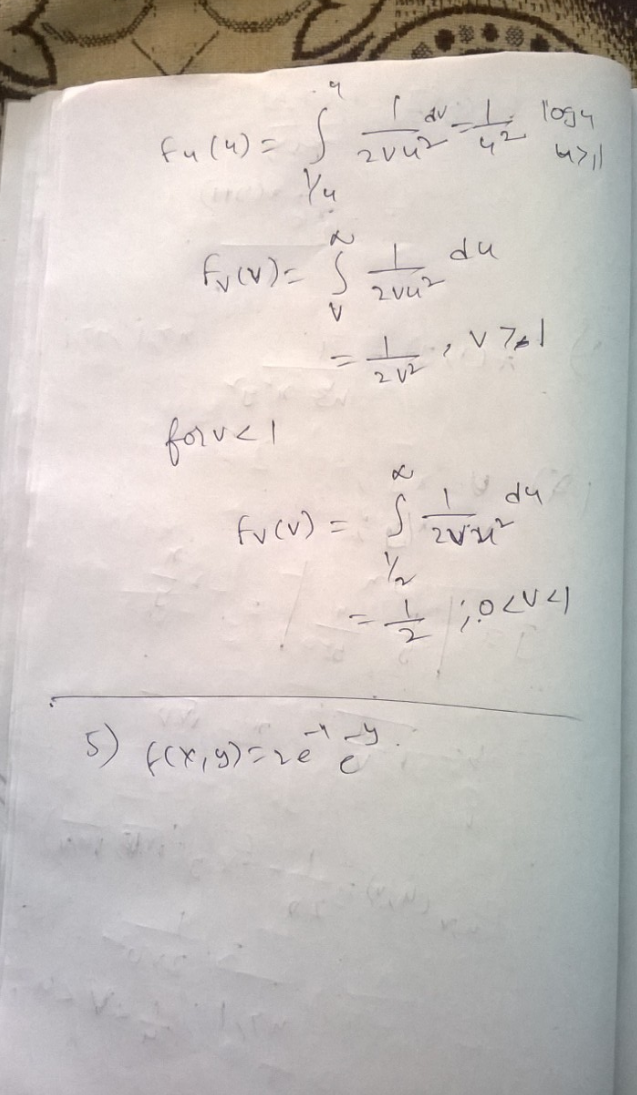 fu(u) = ∫_{1/u}^{u} 1/(2vu²) dv = 1/u² · log u
u ≥ 1
fv(v) = ∫_{v}^{∝} 1/(2vu²) du
= 1/(2v²) , v ≥ 1
for v < 1
fv(v) = ∫_{1/2}^{∝} 1/(2vu²) du
= 1/2 ; 0 < v < 1
5) f(x,y) = 2e^{-x} e^{-y}.